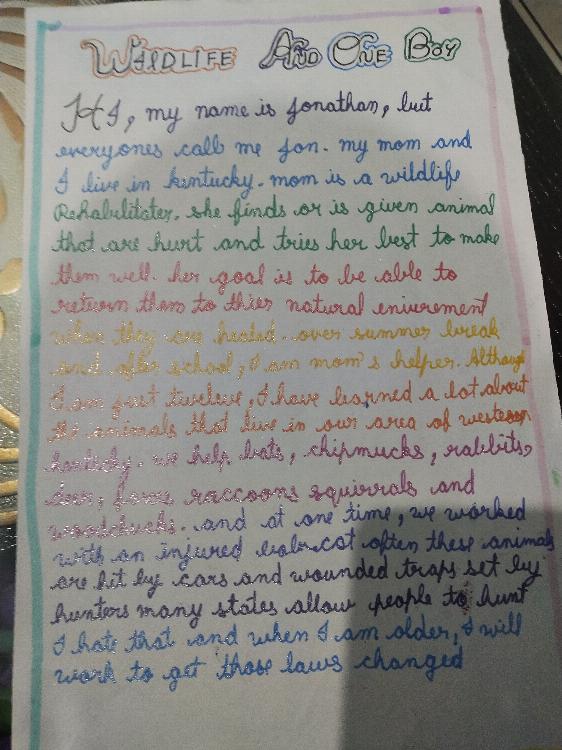 WILDLIFE AND ONE BOY
HI, my name is Jonathan, but
everyones call me Jon. my mom and
I live in kentucky. mom is a wildlife
Rehabilitater. she finds or is given animal
that are hurt and tries her best to make
them well. her goal is to be able to
return them to thier natural eniurement
when they are healed. over summer break
and after school, I am mom's helper. Although
I am just tweleve, I have learned a lot about
the animals that live in our area of western
kentucky. we help bats, chipmucks, rabbits,
deer, foxes raccoons squirrals and
woodchucks. and at one time, we worked
with an injured bobcat often these animals
are hit by cars and wounded traps set by
hunters many states allow people to hunt
I hate that and when I am older, I will
work to get those laws changed